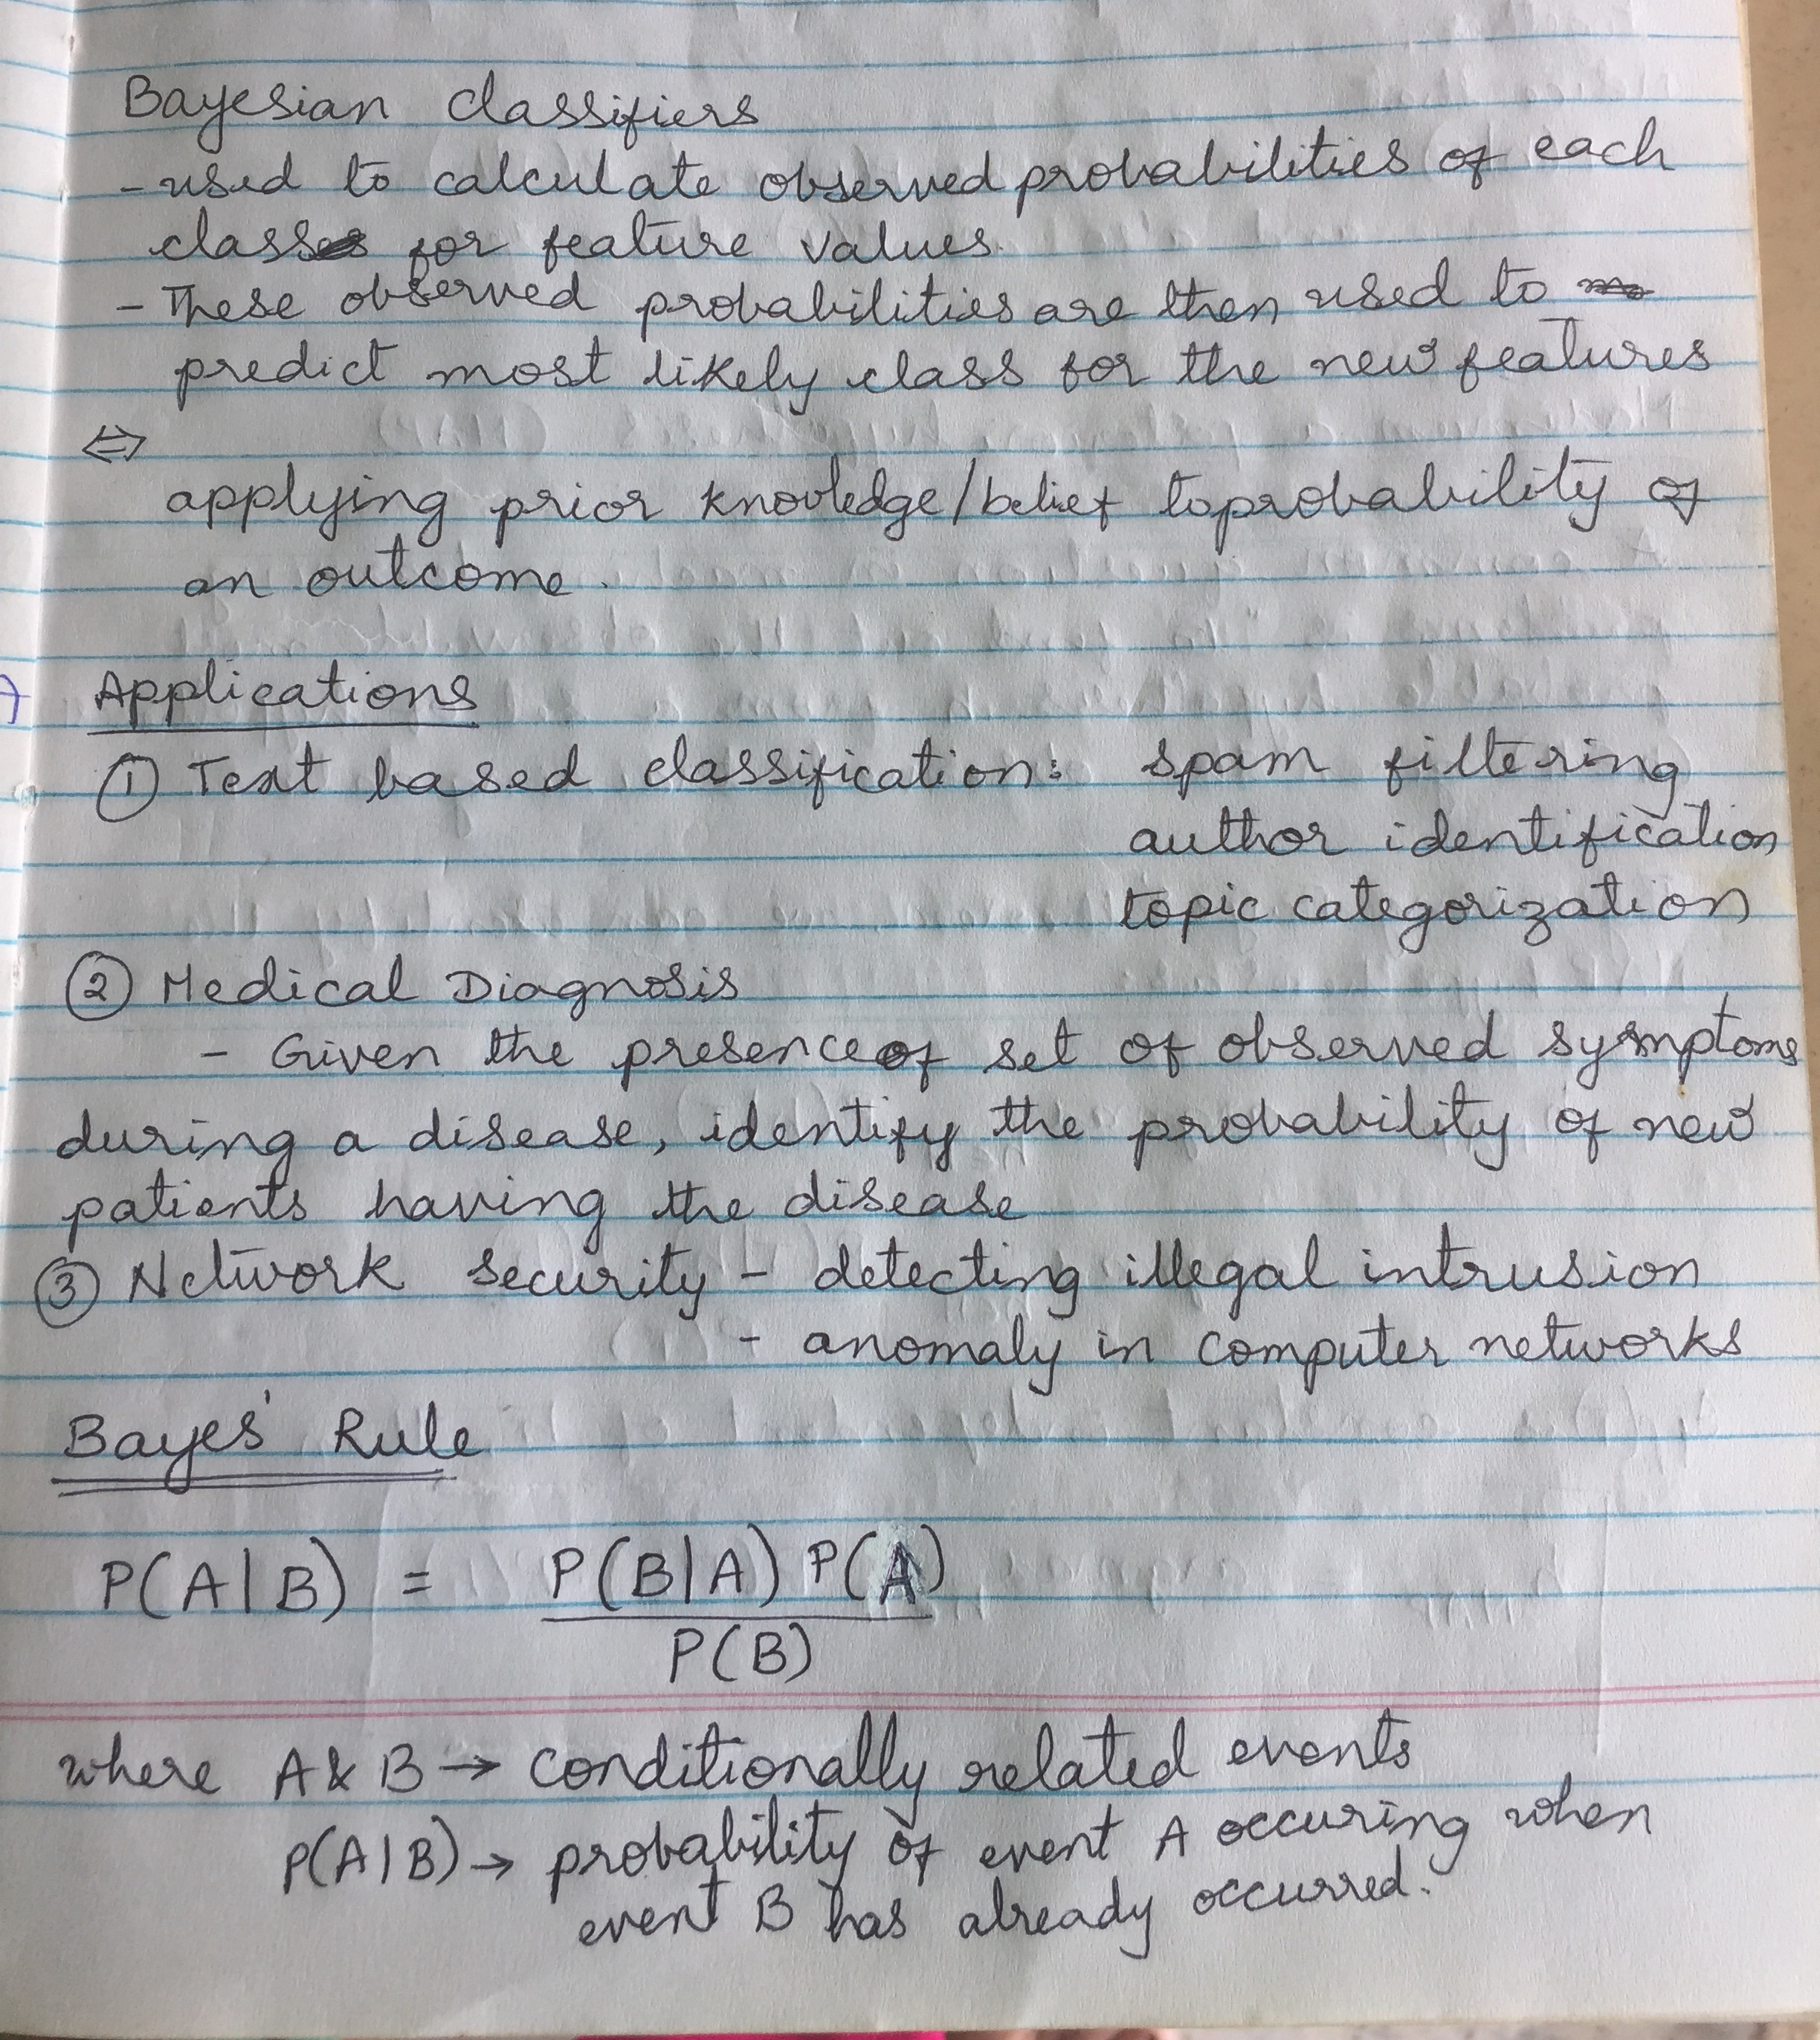 Bayesian classifiers
- used to calculate observed probabilities of each
class for feature values.
- These observed probabilities are then used to
predict most likely class for the new features
⇔
applying prior knowledge/belief to probability of
an outcome.
Applications
① Text based classification: spam filtering
author identification
topic categorization
② Medical Diagnosis
- Given the presence of set of observed symptoms
during a disease, identify the probability of new
patients having the disease
③ Network security - detecting illegal intrusion
- anomaly in computer networks
Bayes' Rule
P(A|B) = P(B|A) P(A)
P(B)
where A & B → conditionally related events
P(A|B) → probability of event A occuring when
event B has already occurred.